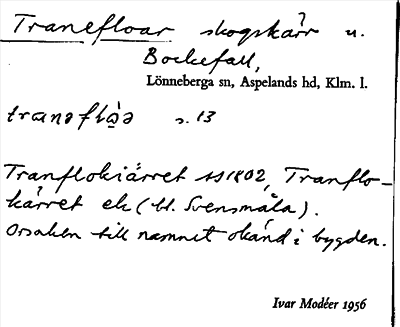 Tranefloar skogskärr u.
Bockefall,
Lönneberga sn, Aspelands hd, Klm. l.
tranəflò̱ə s. 13
Tranflokiärret SS 1802, Tranflo-
kärret ek (t. Svensmåla).
Orsaken till namnet okänd i bygden.
Ivar Modéer 1956